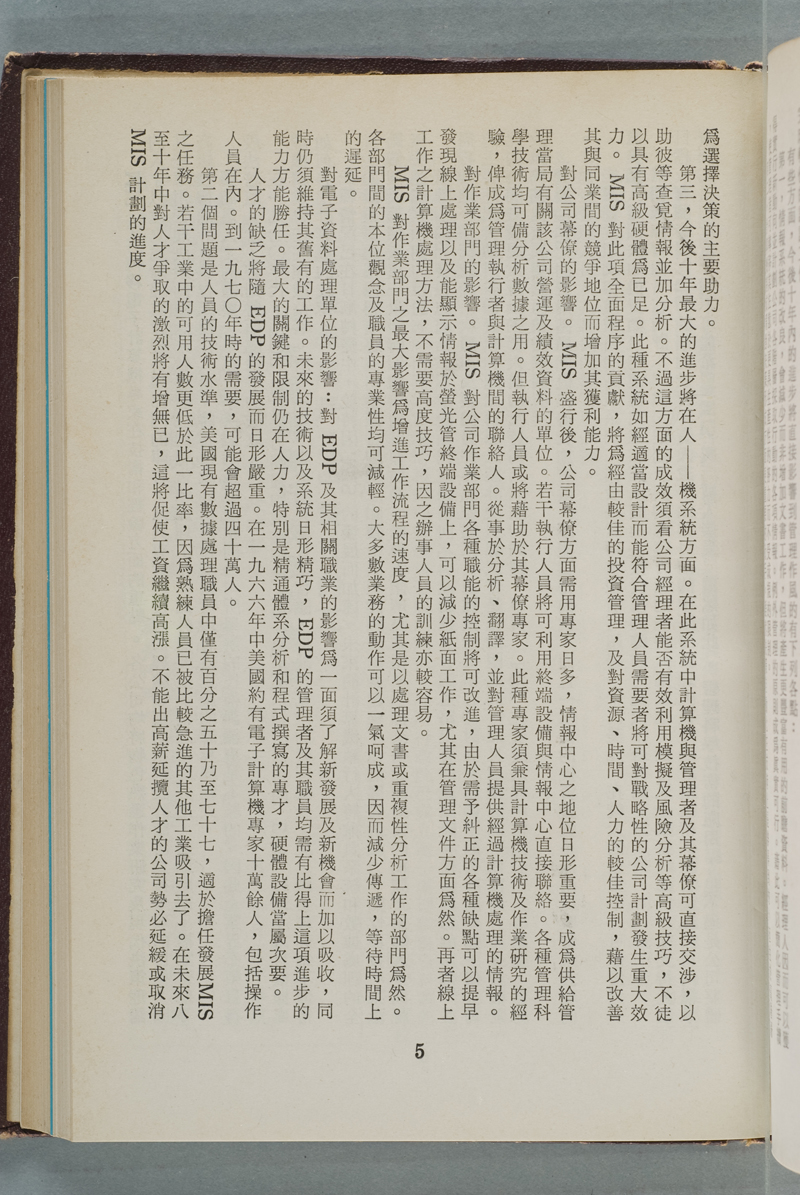 爲選擇決策的主要助力。
第三，今後十年最大的進步將在人——機系統方面。在此系統中計算機與管理者及其幕僚可直接交涉，以
助彼等查覓情報並加分析。不過這方面的成效須看公司經理者能否有效利用模擬及風險分析等高級技巧，不徒
以具有高級硬體爲已足。此種系統如經適當設計而能符合管理人員需要者將可對戰略性的公司計劃發生重大效
力。MIS 對此項全面程序的貢獻，將爲經由較佳的投資管理，及對資源、時間、人力的較佳控制，藉以改善
其與同業間的競爭地位而增加其獲利能力。
對公司幕僚的影響。MIS 盛行後，公司幕僚方面需用專家日多，情報中心之地位日形重要，成爲供給管
理當局有關該公司營運及績效資料的單位。若干執行人員將可利用終端設備與情報中心直接聯絡。各種管理科
學技術均可備分析數據之用。但執行人員或將藉助於其幕僚專家。此種專家須兼具計算機技術及作業硏究的經
驗，俾成爲管理執行者與計算機間的聯絡人。從事於分析、翻譯，並對管理人員提供經過計算機處理的情報。
對作業部門的影響。MIS 對公司作業部門各種職能的控制將可改進，由於需予糾正的各種缺點可以提早
發現線上處理以及能顯示情報於螢光管終端設備上，可以減少紙面工作，尤其在管理文件方面爲然。再者線上
工作之計算機處理方法，不需要高度技巧，因之辦事人員的訓練亦較容易。
MIS 對作業部門之最大影響爲增進工作流程的速度，尤其是以處理文書或重複性分析工作的部門爲然。
各部門間的本位觀念及職員的專業性均可減輕。大多數業務的動作可以一氣呵成，因而減少傳遞，等待時間上
的遲延。
對電子資料處理單位的影響：對 EDP 及其相關職業的影響爲一面須了解新發展及新機會而加以吸收，同
時仍須維持其舊有的工作。未來的技術以及系統日形精巧，EDP 的管理者及其職員均需有比得上這項進步的
能力方能勝任。最大的關鍵和限制仍在人力，特別是精通體系分析和程式撰寫的專才，硬體設備當屬次要。
人才的缺乏將隨 EDP 的發展而日形嚴重。在一九六六年中美國約有電子計算機專家十萬餘人，包括操作
人員在內。到一九七〇年時的需要，可能會超過四十萬人。
第二個問題是人員的技術水準，美國現有數據處理職員中僅有百分之五十乃至七十七，適於擔任發展MIS
之任務。若干工業中的可用人數更低於此一比率，因爲熟練人員已被比較急進的其他工業吸引去了。在未來八
至十年中對人才爭取的激烈將有增無已，這將促使工資繼續高漲。不能出高薪延攬人才的公司勢必延緩或取消
MIS 計劃的進度。
5